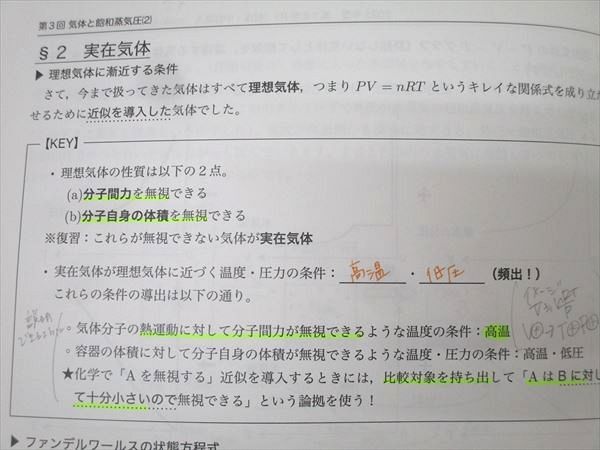 第3回 気体と飽和蒸気圧(2)
§2 実在気体
▶ 理想気体に漸近する条件
さて，今まで扱ってきた気体はすべて理想気体，つまり PV = nRT というキレイな関係式を成り立た
せるために近似を導入した気体でした。
【KEY】
・理想気体の性質は以下の2点。
(a)分子間力を無視できる
(b)分子自身の体積を無視できる
※復習：これらが無視できない気体が実在気体
・実在気体が理想気体に近づく温度・圧力の条件： 高温 ・ 低圧 (頻出！)
これらの条件の導出は以下の通り。
◦ 気体分子の熱運動に対して分子間力が無視できるような温度の条件：高温
◦ 容器の体積に対して分子自身の体積が無視できるような温度・圧力の条件：高温・低圧
★化学で「A を無視する」近似を導入するときには，比較対象を持ち出して「A は B に対し
て十分小さいので無視できる」という論拠を使う！
▶ ファンデルワールスの状態方程式